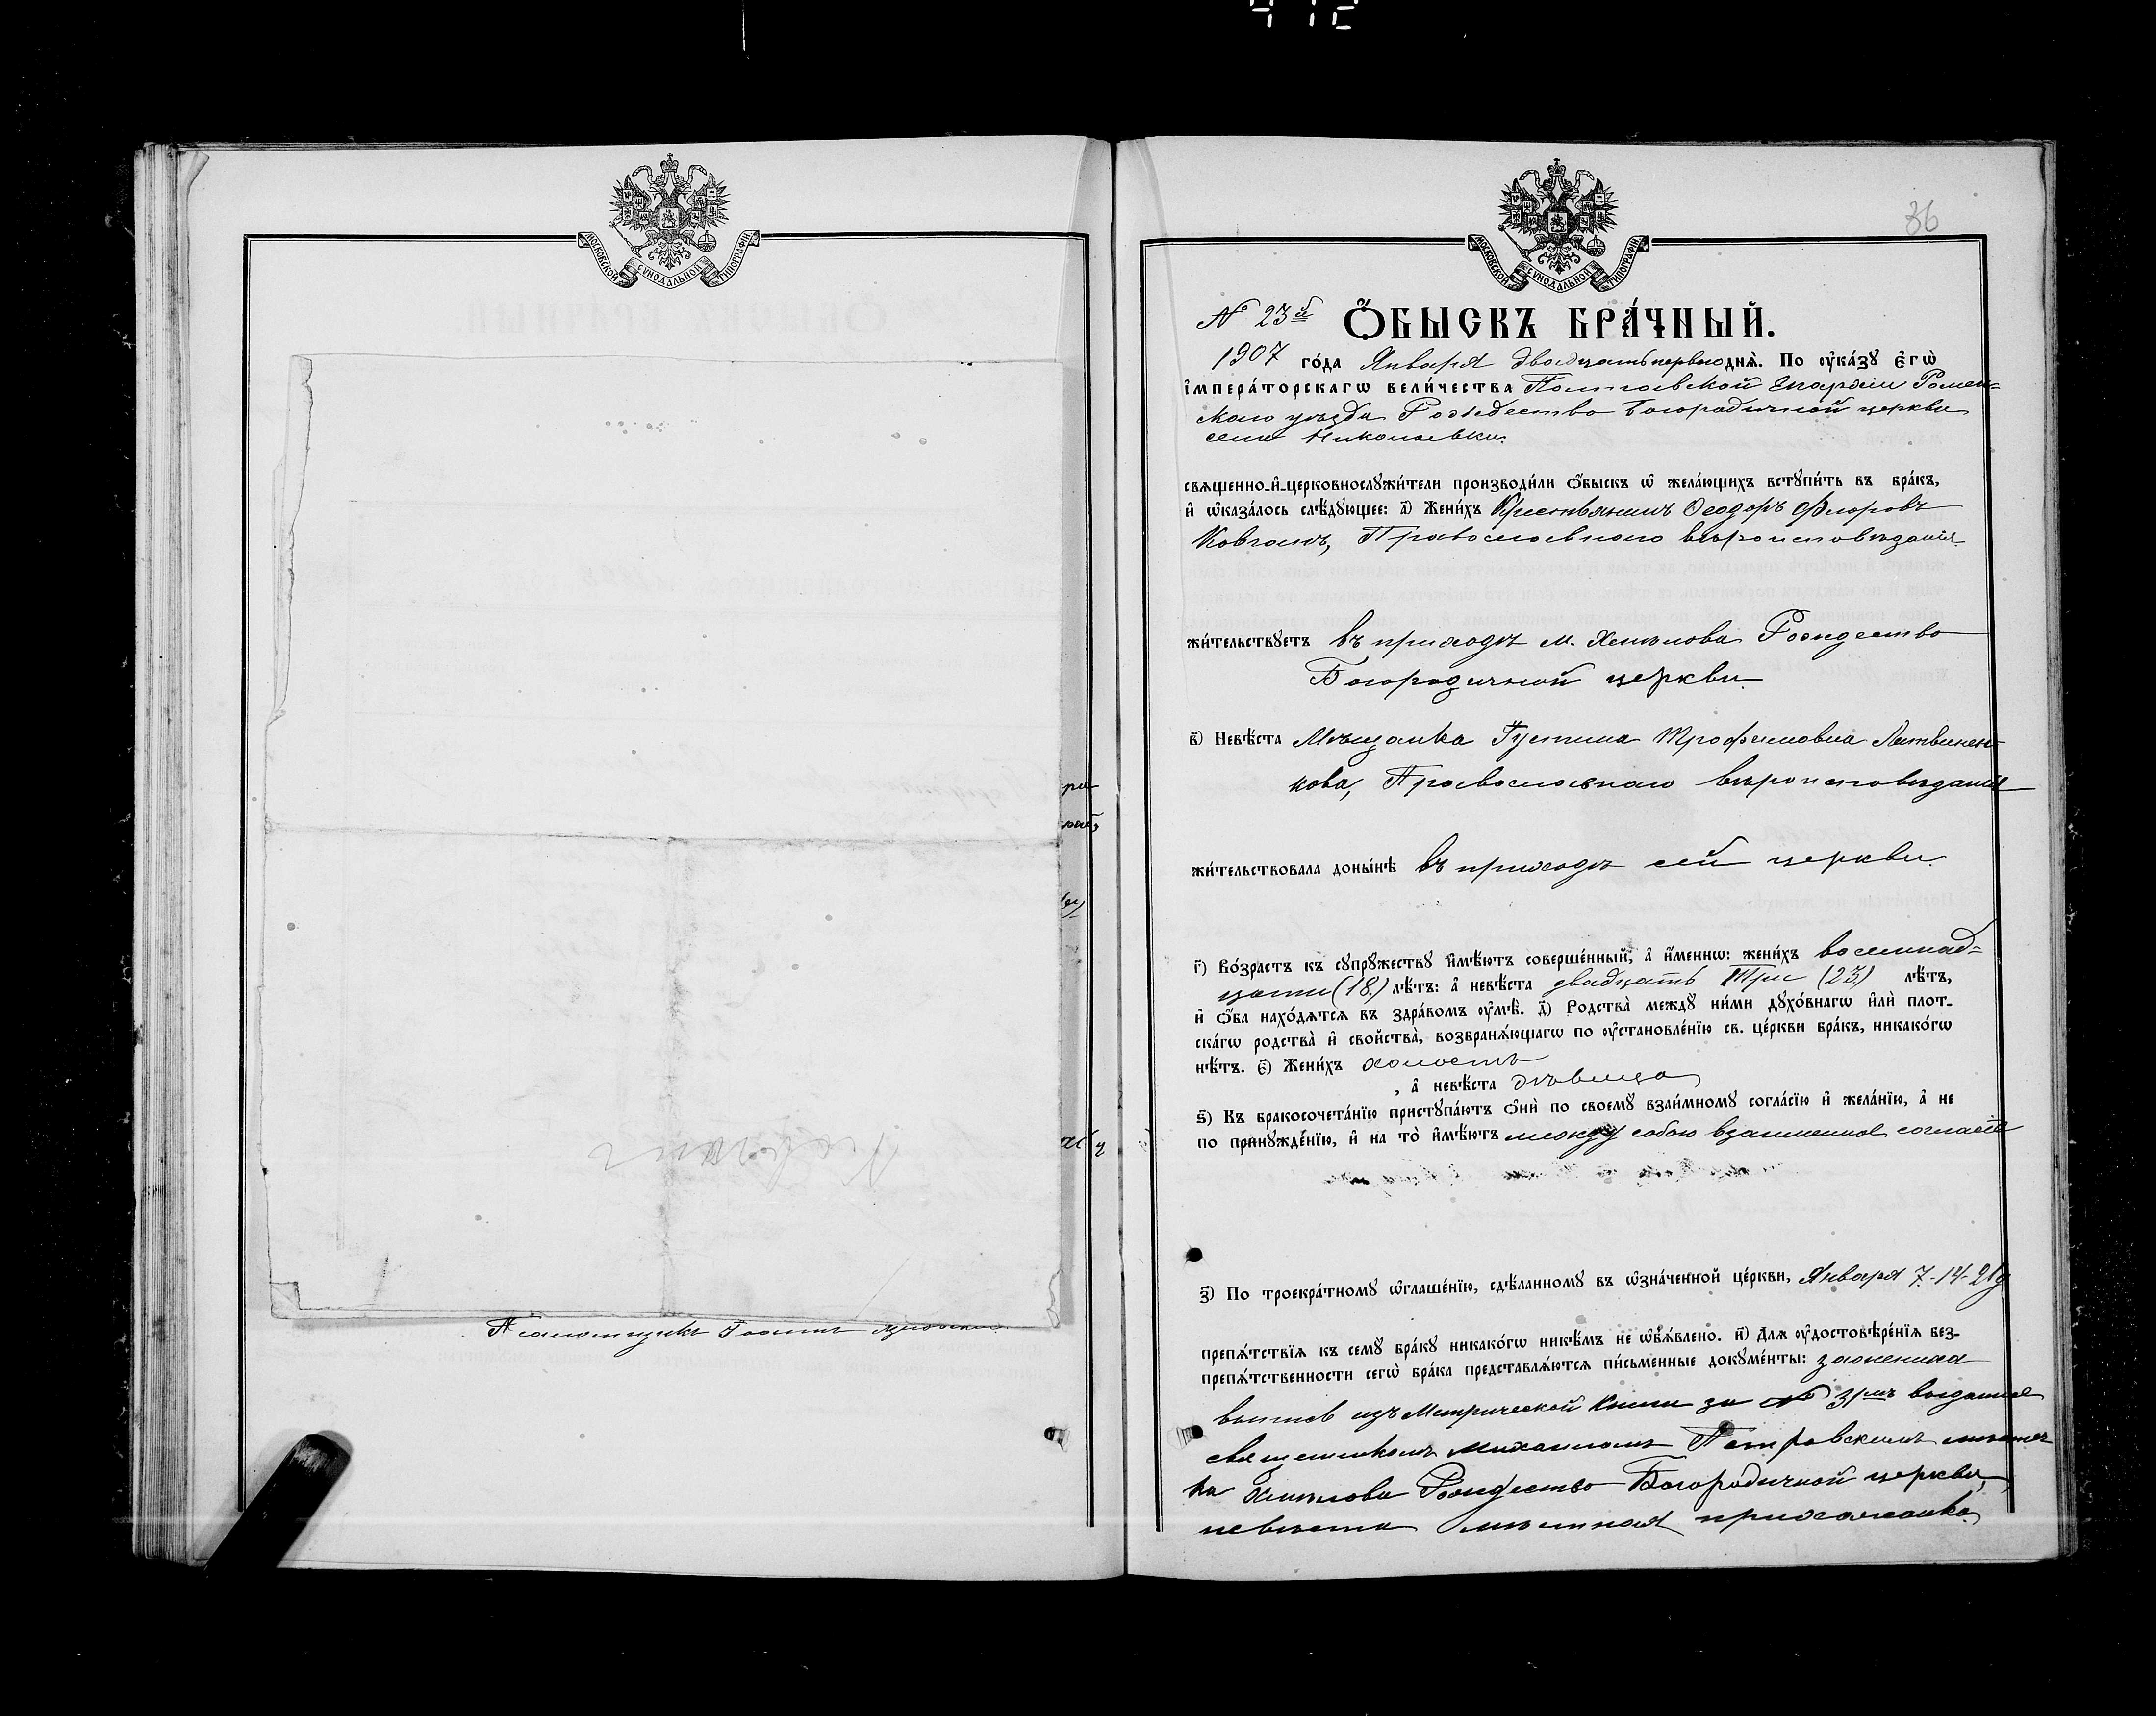 МОСКОВСКОЙ СѴНОДАЛЬНОЙ ТИПОГРАФІИ
Псаломщикъ Іоаннъ
36
МОСКОВСКОЙ СѴНОДАЛЬНОЙ ТИПОГРАФІИ
N 23й Ѻ҆БЫСКЪ БРА́ЧНЫЙ.
1907 го́да Января двадцать первого дня̀. По ᲂу҆ка́зꙋ є҆гѡ̀
і҆мпера́торскагѡ вели́чества Полтавской Епархіи Ромен-
скаго уѣзда Рождество Богородичной церкви
села Николаевки.
свѧщенно-и҆-церковнослꙋжи́тели производи́ли ѻ҆́быскъ ѡ҆ жела́ющихъ встꙋпи́ть въ бра́къ,
и҆ ѡ҆каза́лось слѣ́дꙋющее: а҃) Жени́хъ Крестьянинъ Ѳеодоръ Флоровъ
Ковганъ, Православнаго вѣроисповѣданія
жи́тельствꙋетъ въ приходѣ м. Хмѣлова Рождество
Богородичной церкви
в҃) Невѣ́ста Мѣщанка Іустина Трофимовна Литвинен-
кова, Православнаго вѣроисповѣданія
жи́тельствовала доны́нѣ въ приходѣ сей церкви.
г҃) Во́зрастъ къ сꙋпрꙋ́жествꙋ и҆мѣ́ютъ соверше́нный, а҆ и҆́меннѡ: жени́хъ восемнад-
цати (18.) лѣ́тъ: а҆ невѣ́ста двадцать три (23.) лѣ́тъ,
и҆ ѻ҆́ба нахо́дѧтсѧ въ здра́вомъ ᲂу҆мѣ̀. д҃) Родства̀ междꙋ ни́ми дꙋхо́внагѡ и҆лѝ плот-
ска́гѡ родства̀ и҆ свойства̀, возбранѧ́ющагѡ по ᲂу҆становле́нїю св. це́ркви бра́къ, никако́гѡ
нѣ́тъ. є҃) Жени́хъ холостъ
, а҆ невѣ́ста дѣвица
ѕ҃) Къ бракосочета́нїю пристꙋпа́ютъ ѻ҆нѝ по своемꙋ̀ взаи́мномꙋ согла́сїю и҆ жела́нїю, а҆ не
по принꙋжде́нїю, и҆ на то̀ и҆мѣ́ютъ между собою взаимное согласіе
з҃) По троекра́тномꙋ ѡ҆глаше́нїю, сдѣ́ланномꙋ въ ѡ҆зна́ченной це́ркви, Января 7-14-21 д
препѧ́тствїѧ къ семꙋ̀ бра́кꙋ никако́гѡ никѣ́мъ не ѡ҆б̾ѧ́влено. и҃) Длѧ ᲂу҆достовѣре́нїѧ без-
препѧ́тственности сегѡ̀ бра́ка представлѧ́ютсѧ пи́сьменные докꙋме́нты: за жениха
выпись изъ Метрической Книги за № 31мъ выданное
священникомъ Михаиломъ Петровскимъ мѣстеч
ка Хмѣлова Рождество Богородичной церкви,
невѣста мѣстная прихожанка